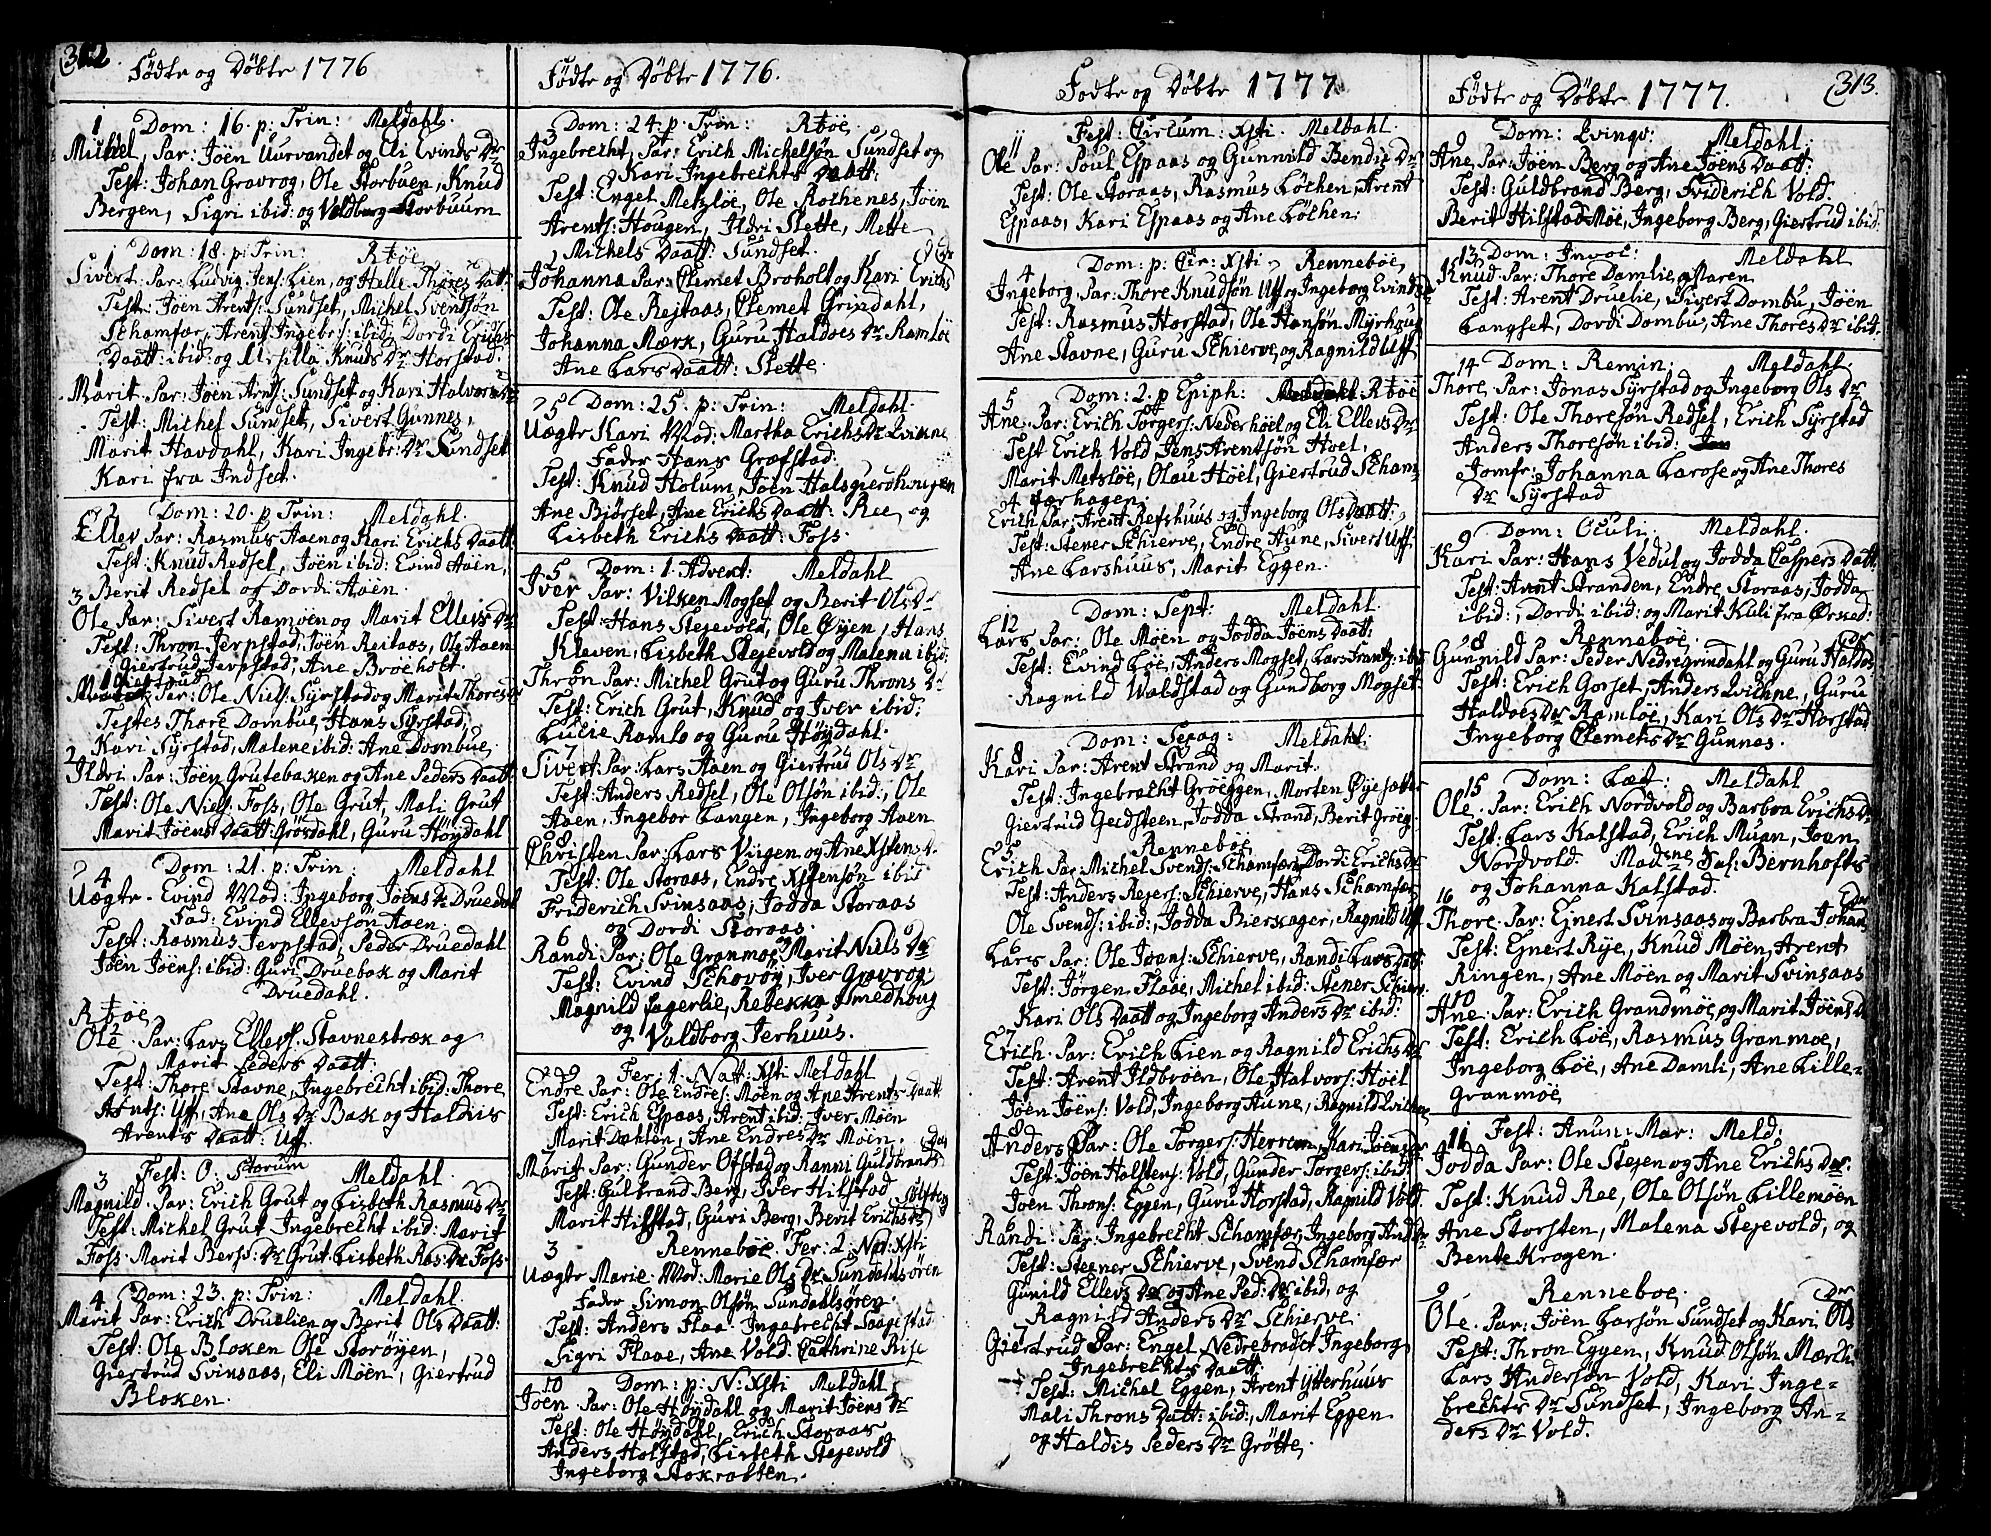 312.
Födte og Döbte 1776
1 Dom: 16. p: Trin: Meldahl.
Michel, Par: Jöen Uurvandet og Eli Evinds Dr
Test: Johan Gravrog, Ole Storbuen, Knud
Bergen, Sigri ibid: og Voldborg Storbuum
1 Dom: 18. p: Trin: Rböe
Sivert. Par: Ludvig Jens: Lien, og Helle Thores Datt:
Test: Jöen Arents: Sundset, Michel Svendsön
Schamfær, Arent Ingebr: ibid: Dordi Erichs
Daatt: ibid: og Ursilla Knuds Dr Horstad.
Marit. Par: Jöen Arnts: Sundset og Kari Halvors Dr
Test: Michel Sundset, Sivert Gunnes,
Marit Havdahl, Kari Ingebr: Dr Sundset
Kari fra Indset.
2 Dom: 20. p Trin: Meldahl.
Ellev Par: Rasmus Aaen og Kari Erichs Daatt.
Test: Knud Redsel, Jöen ibid: Evind Aaen,
Berit Redsel og Dordi Aaen.
3
Ole Par: Sivert Ramöen og Marit Ellevs Dr
Test: Thron Jerpstad, Jöen Reitaas, Ole Aaen
Giertrud Jerpstad, Ane Bröeholt.
1 Giertrud
Par: Ole Niels: Syrstad og Marit Thores Dr
Testes Thore Dombue, Hans Syrstad,
Kari Syrstad, Malene ibid: Ane Dombue.
2
Ildri Par: Jöen Grutebaken og Ane Peders Daatt:
Test: Ole Niels: Foss, Ole Grut, Mali Grut
Marit Jöens Daatt: Grösdahl, Guru Höydahl
4 Dom: 21. p: Trin: Meldahl
Uægte. Evind Mod: Ingeborg Jöens Dr Druedal
Fad: Evind Ellevsön Aaen.
Test: Rasmus Jerpstad, Peder Druedahl
Jöen Jöens: ibid: Guri Druebak og Marit
Druedahl.
Rböe
2
Ole. Par: Lars Ellefs: Stavnesbræk og
Marit Peders Daatt:
Test: Thore Stavne, Ingebrecht ibid: Thore
Arnts: Uff, Ane Ols Dr Bak og Haldis
Arents Daatt: Uff.
3 Fest: O: Storum Meldahl.
Magnild. Par: Erich Grut og Lisbeth Rasmus Dr
Test: Michel Grut, Ingebrecht ibid: Marit
Foss. Marit Berss: Dr Grut. Lisbeth Ras: Dr Foss.
4 Dom: 23. p: Trin: Meldahl.
Marit Par: Erich Druelien og Berit Ols Daatt:
Test: Ole Bloken Ole Storöyen,
Giertrud Svinsaas, Eli Möen, Giertrud
Bloken.
Födte og Döbte 1776.
3 Dom: 24. p. Trin: Rböe.
Ingebrecht, Par: Erich Michelsön Sundset og
Kari Ingebrechts Daatt:
Test: Engel Metzlöe, Ole Rothenes, Jöen
Arents: Hougen, Ildri Slette, Mette
Michels Daatt: Sundset.
Johanna Par: Clemet Broholt og Kari Erichs Dr
Test: Ole Rejtaas, Clemet Grindahl,
Johanna Mærk, Guru Haldoes Dr Ramlöe
Ane Lars Daatt: Slette.
5 Dom: 25. p: Trin: Meldahl.
Uægte Kari Mod: Martha Erichs Dr Qvikne
Fader Hans Græfstad.
Test: Knud Holum, Jöen Halsgierdhougen
Ane Björset, Ane Erichs Daatt: Ree, og
Lisbeth Erichs Daatt: Foss.
5 Dom: 1. Advent: Meldahl
Iver Par: Vilken Mogset og Berit Ols Dr
Test: Hans Stejevold, Ole Öyen, Hans
Kleven, Lisbeth Stejevold og Malena ibid:
6
Thron Par: Michel Grut og Guru Throns Dr
Test: Erich Grut, Knud og Iver ibid:
Lucie Ramlo og Guru Höydahl.
7
Sivert. Par: Lars Aaen og Giertrud Ols Dr
Test: Anders Redsel, Ole Olsön ibid:, Ole
Aaen, Ingebor Langen, Ingeborg Aaen
8
Christen Par: Lars Viigen og Ane Xstens D.
Test: Ole Storaas, Endre Xstensön ibid
Friderich Svinsaas, Jodda Storaas
og Dordi Storaas.
6
Randi Par: Ole Granmoe, Marit Niels Dr
Test: Evind Schovöy, Iver Gravrog,
Magnild Lagerlie, Rebekka Smedhoug
og Valdborg Jerhuus.
9 Fer: 1. Nat: Xsti Meldahl
Endre Par: Ole Endres: Möen og Ane Arents Daatt
Test: Erich Espaas, Arent ibid: Iver Möen
Marit Dahlen, Ane Endres Dr Moen.
Marit Par: Gunder Ofstad og Ranni Guldbrands Datt
Test: Gulbrand Berg, Iver Hilstad
Marit Hilstad, Guri Berg, Berit Erichs Dr
3 Renneböe. Fer: 2. Nat: Xsti
Uægte Marie. Mod: Marie Ols Dr Sundahlsören
Fader Simon Olsön Sundahlsören.
Test: Anders Flaa. Ingebrecht
Sigri Flaae, Ane Vold. Cathrine Rise
10 Dom: p: N: Xsti Meldahl
Jöen Par: Ole Höydahl og Marit Jöens Dr
Test: Ole Höydahl, Erich Storaas
Anders Halstad, Lisbeth Stejevold
Ingeborg Stokrabten.
Fodte og Döbte 1777
11 Fest: Circum: Xsti. Meldahl
Ole Par: Poul Espaas og Gunnild Bendix Dr
Test: Ole Storaas, Rasmus Löchen, Arent
Espaas, Kari Espaas og Ane Löchen:
4 Dom: p: Cir: Xsti. Renneböe
Ingeborg. Par: Thore Knudsön Uff og Ingeborg Evinds Dr
Test: Rasmus Horstad, Ole Hansön Myrhoug
Ane Stavne, Guru Schierve, og Ragnild Uff
5 Dom: 2. p Epiph: Rböe
Ane. Par: Erich Torgers: Nederhöel og Eli Ellevs Dr
Test Erich Vold, Jens Arentsön Hoel,
Marit Metslöe, Olau Höel, Giertrud Scham-
færhagen.
4
Erich Par: Arent Refshuus og Ingeborg Ols Daatt:
Test: Stener Schierve, Endre Aune, Sivert Uff.
Ane Larshuus, Marit Eggen.
12 Dom: Sept: Meldahl.
Lars Par: Ole Möen og Jodda Jöens Daatt:
Test: Evind Löe, Anders Mogset, Lars Frantz: ibid
Ragnild Woldstad og Gundborg Mogset.
8 Dom: Sexag: Meldahl.
Kari Par: Arent Strand og Marit.
Test: Ingebrecht Gröeggen, Morten Öyesæter
Giertrud Geidsteen, Jodda Strand, Berit Gröeg.
5 Renneböe
Erich Par: Michel Svends: Schamfær, Dordi Erichs Dr
Test: Anders Rejers: Schierve, Hans Schamfær
Ole Svends: ibid:, Jodda Bierkager, Ragnild Uff.
6
Lars Par: Ole Joens: Schierve, Randi Lars Datt
Test: Jörgen Flaae, Michel ibid: Stener Schierv.
Kari Ols Daatt og Ingeborg Anders Dr ibid:
7
Erich. Par: Erich Lien og Ragnild Erichs Dr
Test: Arent Ildbröen, Ole Halvors: Höel
Jöen Jöens: Vold, Ingeborg Aune, Ragnild
8
Anders Par: Ole Torgers: Herrem, Kari Jöens Dr
Test: Jöen Halstens: Vold, Gunder Torgers: ibid:
Joen Throns: Eggen, Guru Horstad, Ragnild Vold
6
Randi. Par: Ingebrecht Schamfær, Ingeborg And: Dr
Test: Steener Schierve, Svend Schamfær
Gunild Ellevs Dr og Ane Ped: Dr ibid, og
Ragnild Anders Dr Schierve
7
Giertrud Par: Engel Nedrebradset Ingeborg
Ingebrechts Daatt.
Test: Michel Eggen, Arent ytterhuus
Mali Throns Datt: ibid:, Marit Eggen
og Haldis Peders Dr Grötte.
313.
Födte og Döbte 1777.
9 Dom: Qvinqv: Meldahl.
Ane. Par: Jöen Berg og Ane Jöens Daatt:
Test: Guldbrand Berg, Friderich Vold.
Berit Hilstad Möe, Ingeborg Berg, Giertrud ibid:
13 Dom: Invoc: Meldahl
Knud. Par: Thore Damlie og Maren
Test: Arent Druelie, Sivert Dombu, Jöen
Langset, Dordi Dombu, Ane Thores Dr ibid:
14 Dom: Remin: Meldahl.
Thore. Par: Jonas Syrstad og Ingeborg Ols Dr
Test: Ole Thoresön Redsel, Erich Syrstad
Anders Thoresön ibid:
Jomfr: Johanna Larose og Ane Thores
Dr Syrstad
9 Dom: Oculi. Meldahl.
Kari Par: Hans Vedul og Jodda Caspers Datt.
Test: Arnt Stranden, Endre Storaas, Jodda
ibid:, Dordi ibid: og Marit Kuli fra Örked:
8 Renneböe.
Gunnild Par: Peder Nedregrindahl og Guru Haldos Dr
Test: Erich Gorset, Anders Qvichne, Guru
Haldoes Dr Ramlöe, Kari Ols Dr Horstad
Ingeborg Clemets Dr Gunnes.
15 Dom: Læt: Meldahl
Ole. Par: Erich Nordvold og Barbra Erichs Dr
Test: Lars Kalstad, Erich Muan, Joen
Nordvold. Madme Sal: Bernhofts
og Johanna Kalstad.
16
Thore. Par: Ejnert Svinsaas og Barbra Johans Dr
Test: Ejnert Rye, Knud Möen, Arent
Ringen, Ane Möen og Marit Svinsaas
10
Ane. Par: Erich Grandmöe, og Marit Jöens Dr
Test: Erich Löe, Rasmus Granmoe,
Ingeborg Löe, Ane Damli, Ane Lille-
Granmöe
11 Fest: Anun: Mar: Meld:
Jodda Par: Ole Stejen og Ane Erichs Dr
Test: Knud Ree, Ole Olsön Lillemöen
Ane Storsten, Malena Stejevold, og
Bente Krogen.
9 Renneboe.
Ole. Par: Jöen Larsön Sundset og Kari Ols Dr
Test: Thron Eggen, Knud Olsön Mærch
Lars Andersön Vold, Kari Inge-
brechts Dr Sundset, Ingeborg An-
ders Dr Vold.